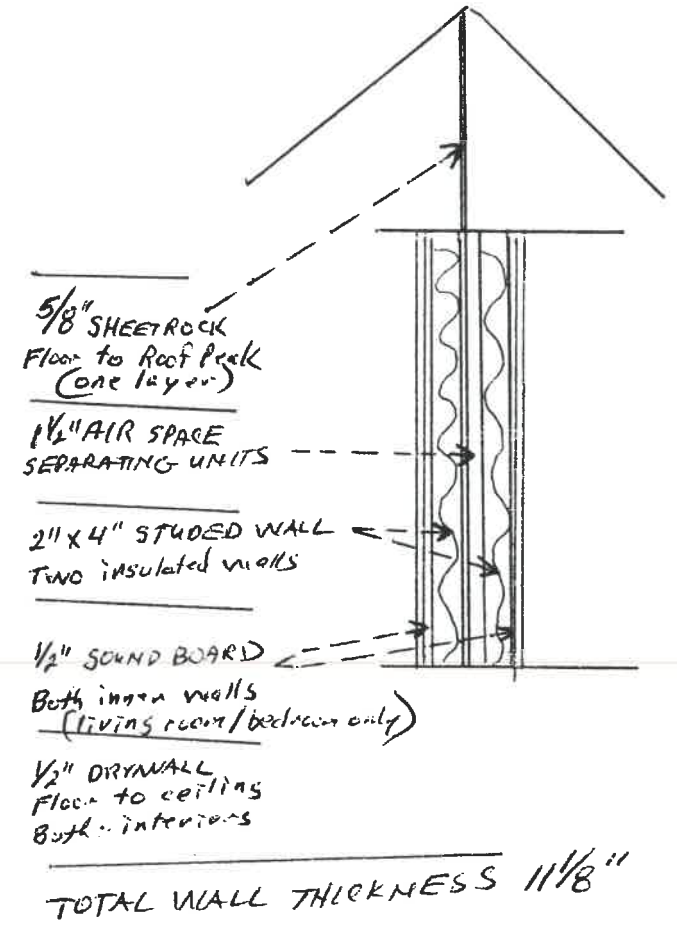 5/8" SHEETROCK
Floor to Roof Peak
(one layer)
1 1/2" AIR SPACE
SEPARATING UNITS
2" X 4" STUDED WALL
TWO insulated walls
1/2" SOUND BOARD
Both inner walls
(living room/bedroom only)
1/2" DRYWALL
Floor to ceiling
Both interiors
TOTAL WALL THICKNESS 11 1/8"